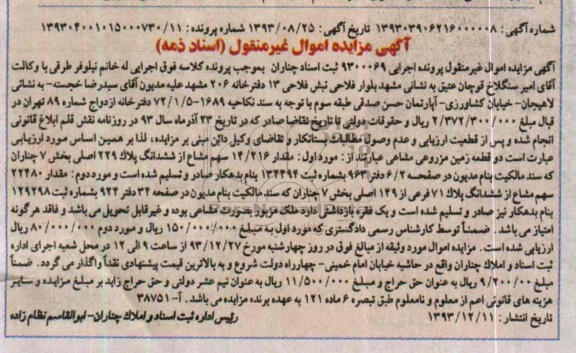 شماره آگهی: ۱۳۹۳۰۳۹۰۶۲۱۶۰۰۰۰۰۸ تاریخ آگهی: ۱۳۹۳/۰۸/۲۵ شماره پرونده: ۱۳۹۳۰۴۰۰۱۰۱۵۰۰۰۷۳۰/۱۱
آگهی مزایده اموال غیرمنقول (اسناد ذمه)
آگهی مزایده اموال غیرمنقول پرونده اجرایی ۹۳۰۰۰۶۹ ثبت اسناد چناران بموجب پرونده کلاسه فوق اجرایی له خانم نیلوفر طرقی با وکالت
آقای امیر سنگلاخ قوچان عتیق به نشانی مشهد بلوار فلاحی نبش فلاحی ۱۳ دفترخانه ۲۰۶ مشهد علیه مدیون آقای سیدرضا خجسته- به نشانی
لاهیجان- خیابان کشاورزی- آپارتمان حسن صدقی طبقه سوم با توجه به سند نکاحیه ۱۶۸۹-۷۲/۱/۵ دفترخانه ازدواج شماره ۸۹ تهران در
قبال مبلغ ۲/۳۷۲/۳۰۰/۰۰۰ ریال و حقوقات دولتی تا تاریخ تقاضا صادر که در تاریخ ۲۳ آذرماه سال ۹۳ در روزنامه نقش قلم ابلاغ قانونی
انجام شده و پس از قطعیت ارزیابی و عدم وصول مطالبات بستانکار و تقاضای وکیل دائن مبنی بر مزایده، لذا بر همین اساس مورد ارزیابی
عبارت است دو قطعه زمین مزروعی مشاعی عبارتند از: مورد اول: مقدار ۱۴/۲۱۶ سهم مشاع از ششدانگ پلاک ۲۲۹ اصلی بخش ۷ چناران
که سند مالکیت بنام مدیون در صفحه ۶/۲ دفتر ۹۶۳ بشماره ثبت ۱۳۴۴۹۴ بنام بدهکار صادر و تسلیم شده است و مورد دوم: مقدار ۲۲۴۸۰
سهم مشاع از ششدانگ پلاک ۷۱ فرعی از ۱۴۹ اصلی بخش ۷ چناران که سند مالکیت بنام مدیون در صفحه ۳۴ دفتر ۹۲۴ بشماره ثبت ۱۲۹۲۹۸
بنام بدهکار نیز صادر و تسلیم شده است و یک فقره بازداشتی دارد ملک مزبور بصورت مشاعی بوده و غیرقابل تحویل می باشد و فاقد هرگونه
امتیاز می باشد. ضمناً توسط کارشناس رسمی دادگستری که مورد اول به مبلغ ۱۵۰/۰۰۰/۰۰۰ ریال و مورد دوم ۸۰/۰۰۰/۰۰۰ ریال
ارزیابی شده است. مزایده اموال مورد وثیقه از مبالغ فوق در روز چهارشنبه مورخ ۹۳/۱۲/۲۷ از ساعت ۹ الی ۱۲ در محل شعبه اجرای اداره
ثبت اسناد و املاک چناران واقع در حاشیه خیابان امام خمینی- چهارراه دولت شروع و به بالاترین قیمت پیشنهادی نقداً واگذار می گردد. ضمناً
مبلغ ۹/۲۰۰/۰۰ ریال به عنوان حق حراج و مبلغ ۱۱/۵۰۰/۰۰۰ ریال به عنوان نیم عشر دولتی و حق حراج زاید بر مبلغ مزایده و سایر
هزینه های قانونی اعم از معلوم و نامعلوم طبق تبصره ۶ ماده ۱۲۱ به عهده برنده مزایده می باشد. آ- ۳۸۷۵۱
تاریخ انتشار: ۱۳۹۳/۱۲/۱۱ رئیس اداره ثبت اسناد و املاک چناران- ابوالقاسم نظام زاده